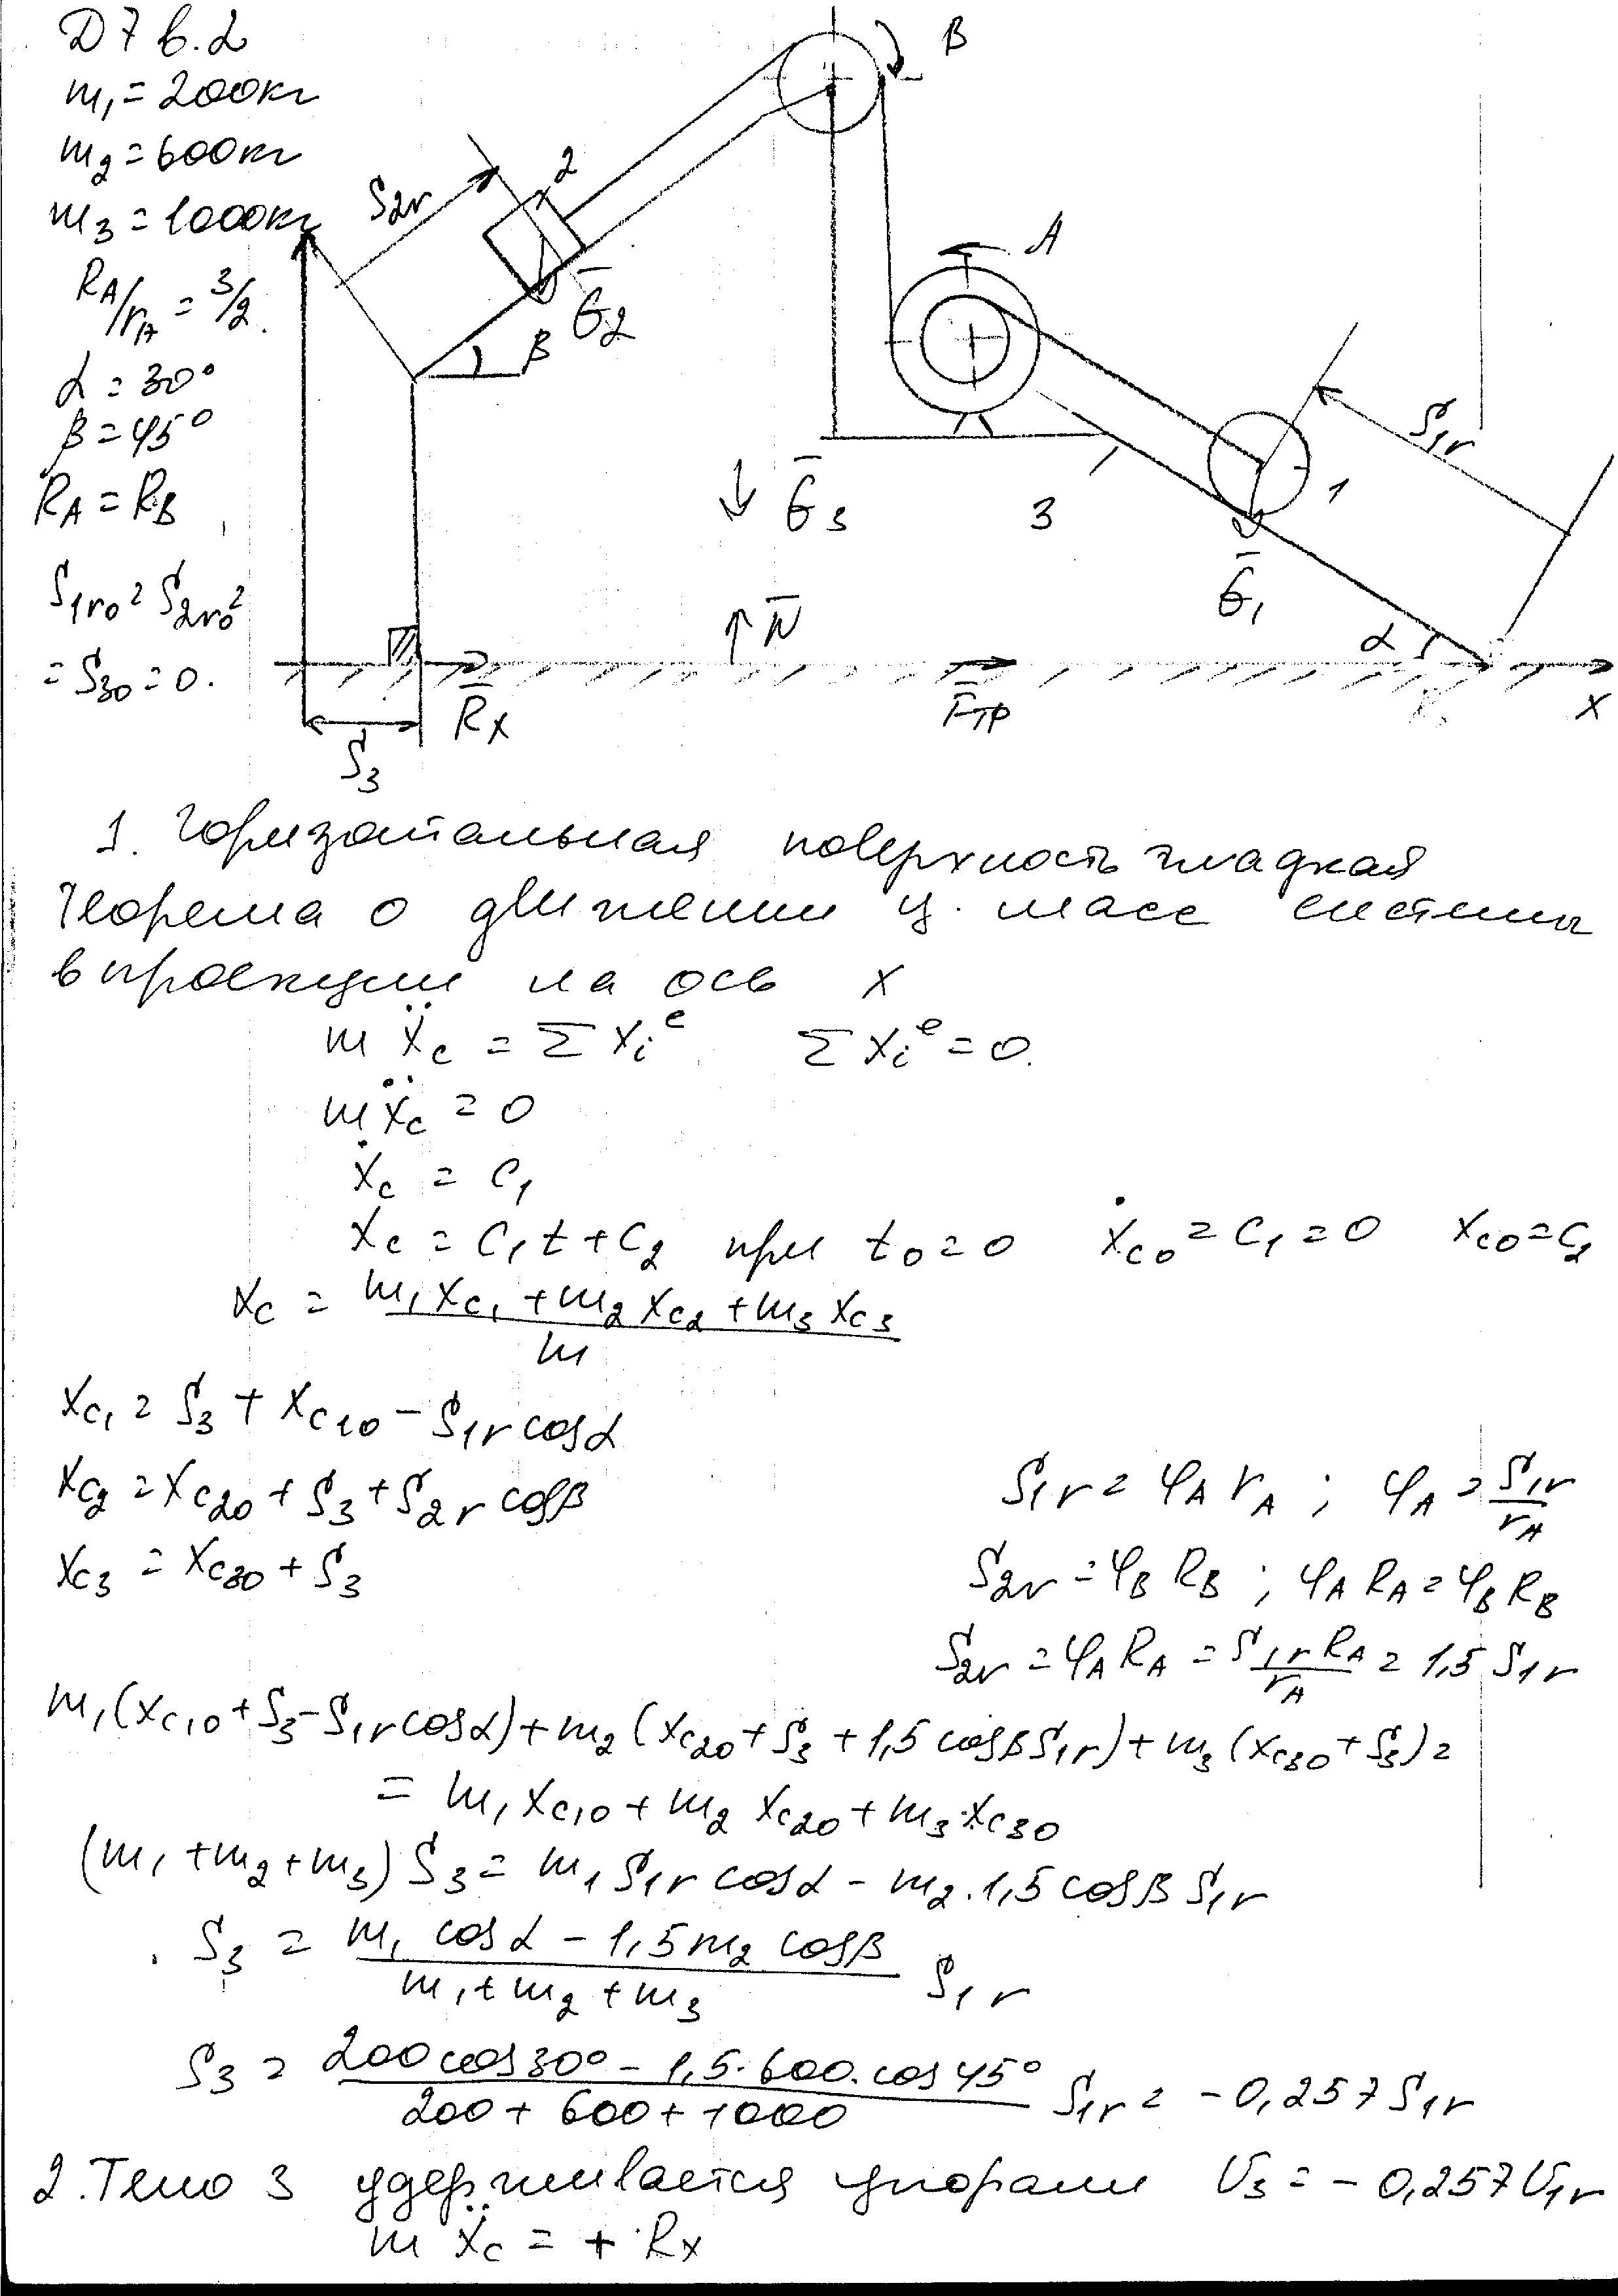 Д7 в.2
m₁ = 200кг
m₂ = 600кг
m₃ = 1000кг
R_A/r_A = 3/2.
α = 30°
β = 45°
R_A = R_B
S₁r₀ = S₂r₀ =
= S₃₀ = 0.
S₂r
2
G̅₂
β
B
A
S₁r
1
G̅₁
3
G̅₃
N̅
α
R̅x
F̅тр
x
S₃
1. Горизотальная поверхность гладкая
Теорема о движении ц. масс системы
в проекции на ось x
mẍc = ΣXᵢᵉ ΣXᵢᵉ = 0.
mẍc = 0
ẋc = C₁
xc = C₁t + C₂ при t₀ = 0 ẋc₀ = C₁ = 0 xc₀ = C₂
xc = (m₁xc₁ + m₂xc₂ + m₃xc₃)/m
xc₁ = S₃ + xc₁₀ − S₁r cosα
xc₂ = xc₂₀ + S₃ + S₂r cosβ
xc₃ = xc₃₀ + S₃
S₁r = φ_A r_A ; φ_A = S₁r/r_A
S₂r = φ_B R_B ; φ_A R_A = φ_B R_B
S₂r = φ_A R_A = S₁r R_A/r_A = 1,5 S₁r
m₁(xc₁₀ + S₃ − S₁r cosα) + m₂(xc₂₀ + S₃ + 1,5 cosβ S₁r) + m₃(xc₃₀ + S₃) =
= m₁xc₁₀ + m₂xc₂₀ + m₃·xc₃₀
(m₁ + m₂ + m₃) S₃ = m₁ S₁r cosα − m₂·1,5 cosβ S₁r
S₃ = (m₁ cosα − 1,5 m₂ cosβ)/(m₁ + m₂ + m₃) S₁r
S₃ = (200 cos30° − 1,5·600·cos45°)/(200 + 600 + 1000) S₁r = −0,257 S₁r
2. Тело 3 удерживается упорами V₃ = −0,257 V₁r
mẍc = + Rx